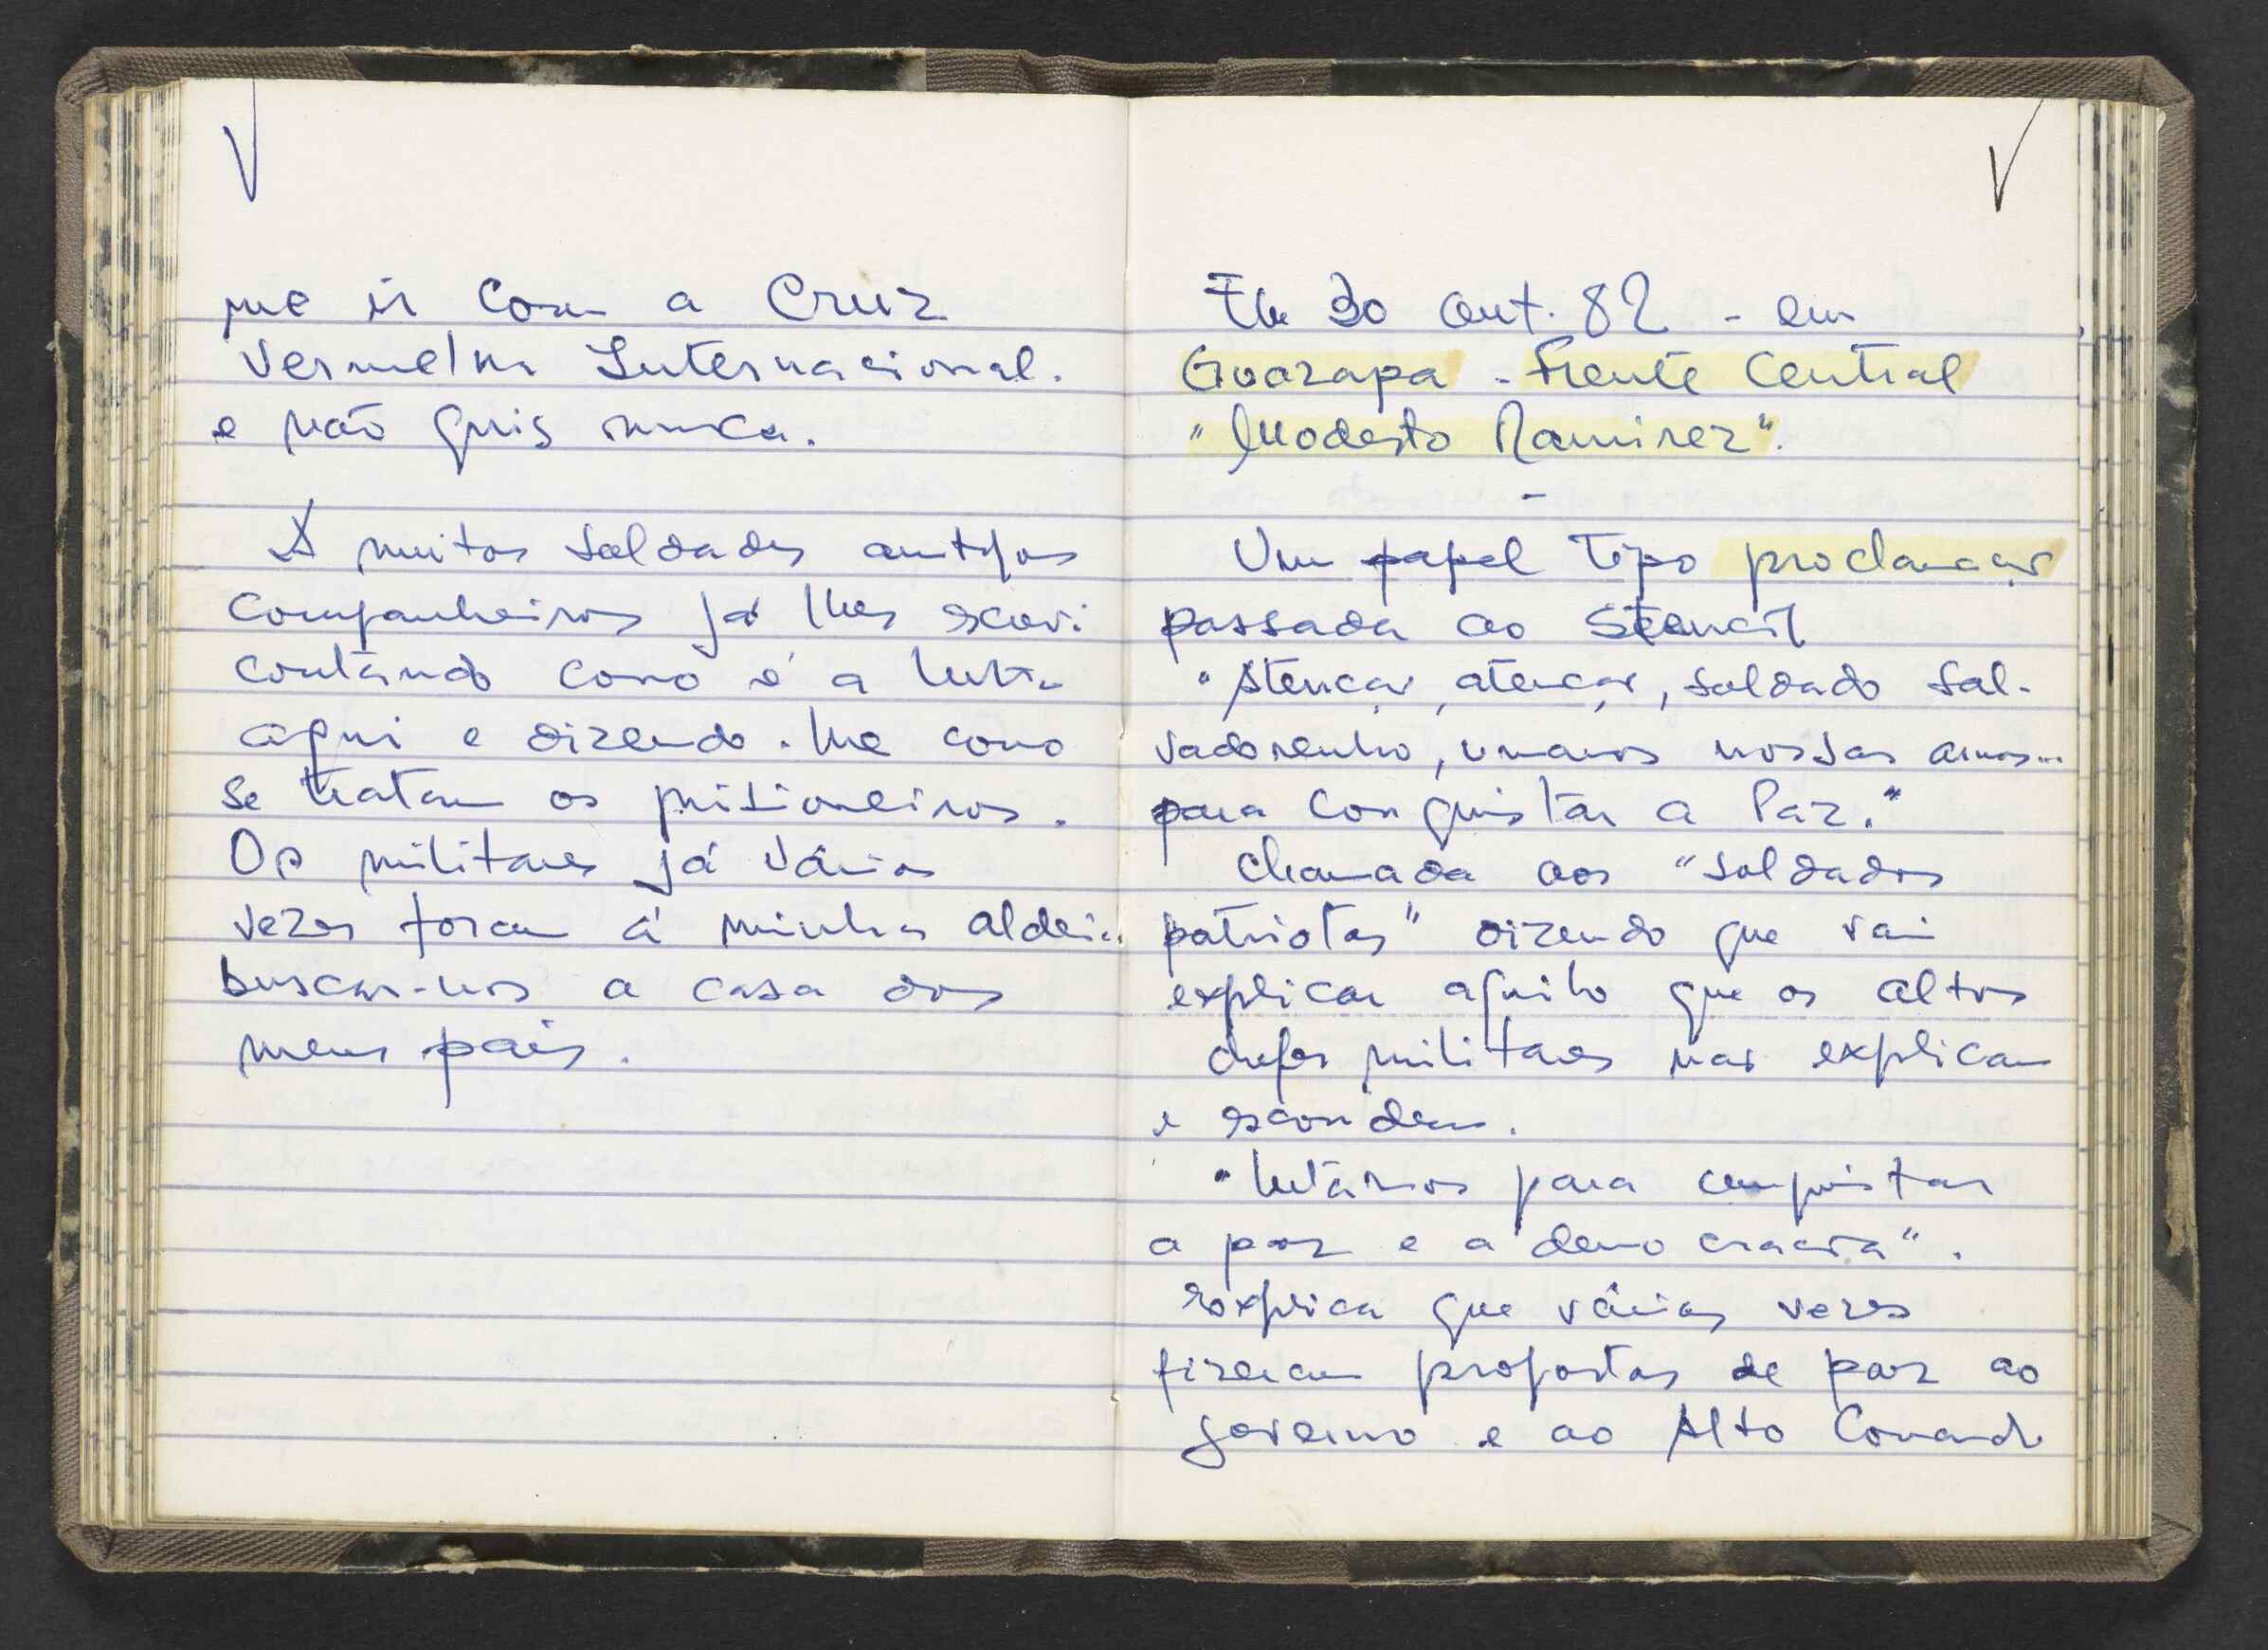 me ir com a Cruz
Vermelha Internacional.
e não quis nunca.
A muitos soldados antigos
companheiros já lhes escrevi
contando como é a luta
aqui e dizendo-lhe como
se tratam os prisioneiros.
Os militares já várias
vezes foram á minha aldeia
buscar-nos a casa dos
meus pais.
Em 30 Out. 82 - em
Guazapa - Frente Central
"Modesto Ramirez".
-
Um papel tipo proclamação
passada ao Stencil
"Atenção, atenção, soldado sal-
vadorenho, unamos nossas armas...
para conquistar a Paz."
Chamada aos "soldados
patriotas" dizendo que vai
explicar aquilo que os altos
chefes militares não explicam
e escondem.
"lutámos para conquistar
a paz e a democracia".
Explica que várias vezes
fizeram propostas de paz ao
governo e ao Alto Comando